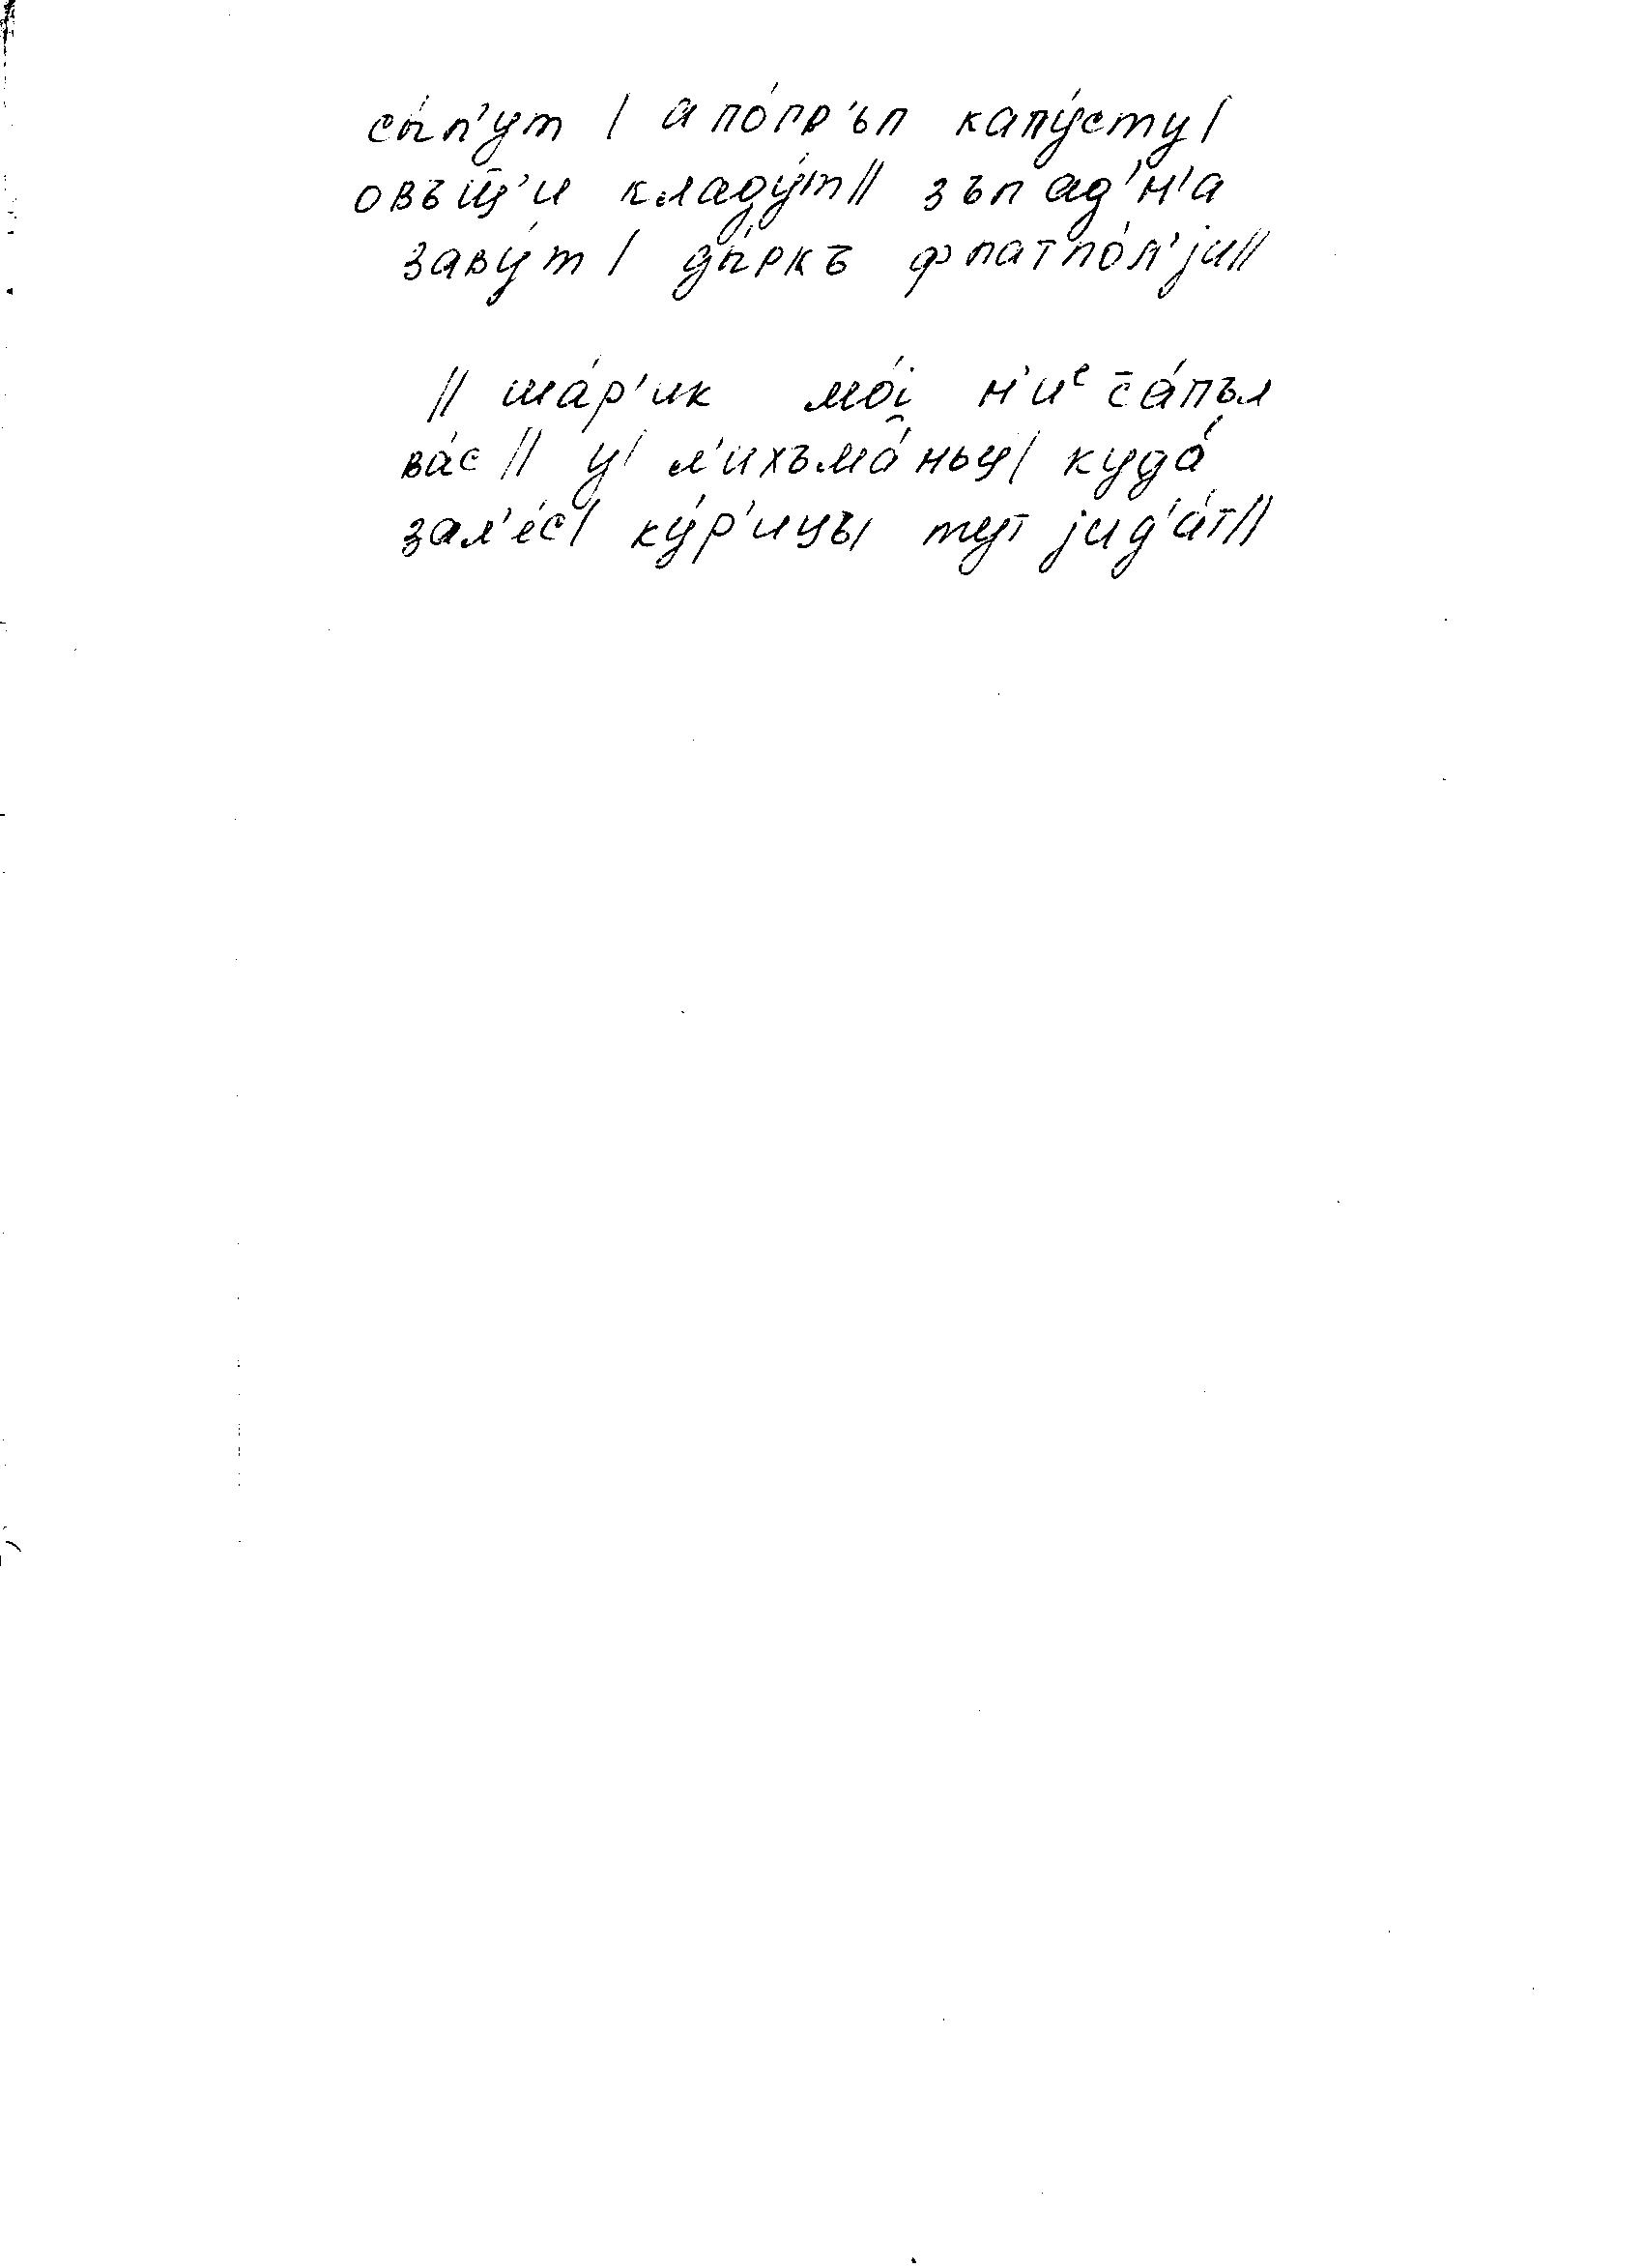 сы́п'ут / а по́гр'ъп капу́сту /
овъщ̄'и кладу́т // зъпад'н'а
заву́т / ды́ркъ фпатпо́л'jи //
// ша́р'ик мо́і̯ н'иᵉ са́пъл
ва́с // у / л'ихъма́ньц / куда́
зал'е́с / ку́р'ицы тут jид'а́т //